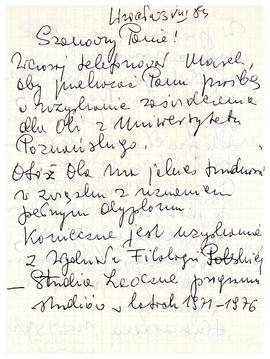 Wrocław VIII 84
Szanowny Panie!
Wczoraj telefonował Marek,
aby przekazać Panu prośbę
o uzyskanie zaświadczenia
dla Oli z Uniwersytetu
Poznańskiego.
Otóż Ola ma jakieś trudności
w związku z uznaniem
pełnym dyplomu.
Konieczne jest uzyskanie
z Wydziału Filologii Polskiej
– Studia Zaoczne programu
studiów w latach 1971-1976